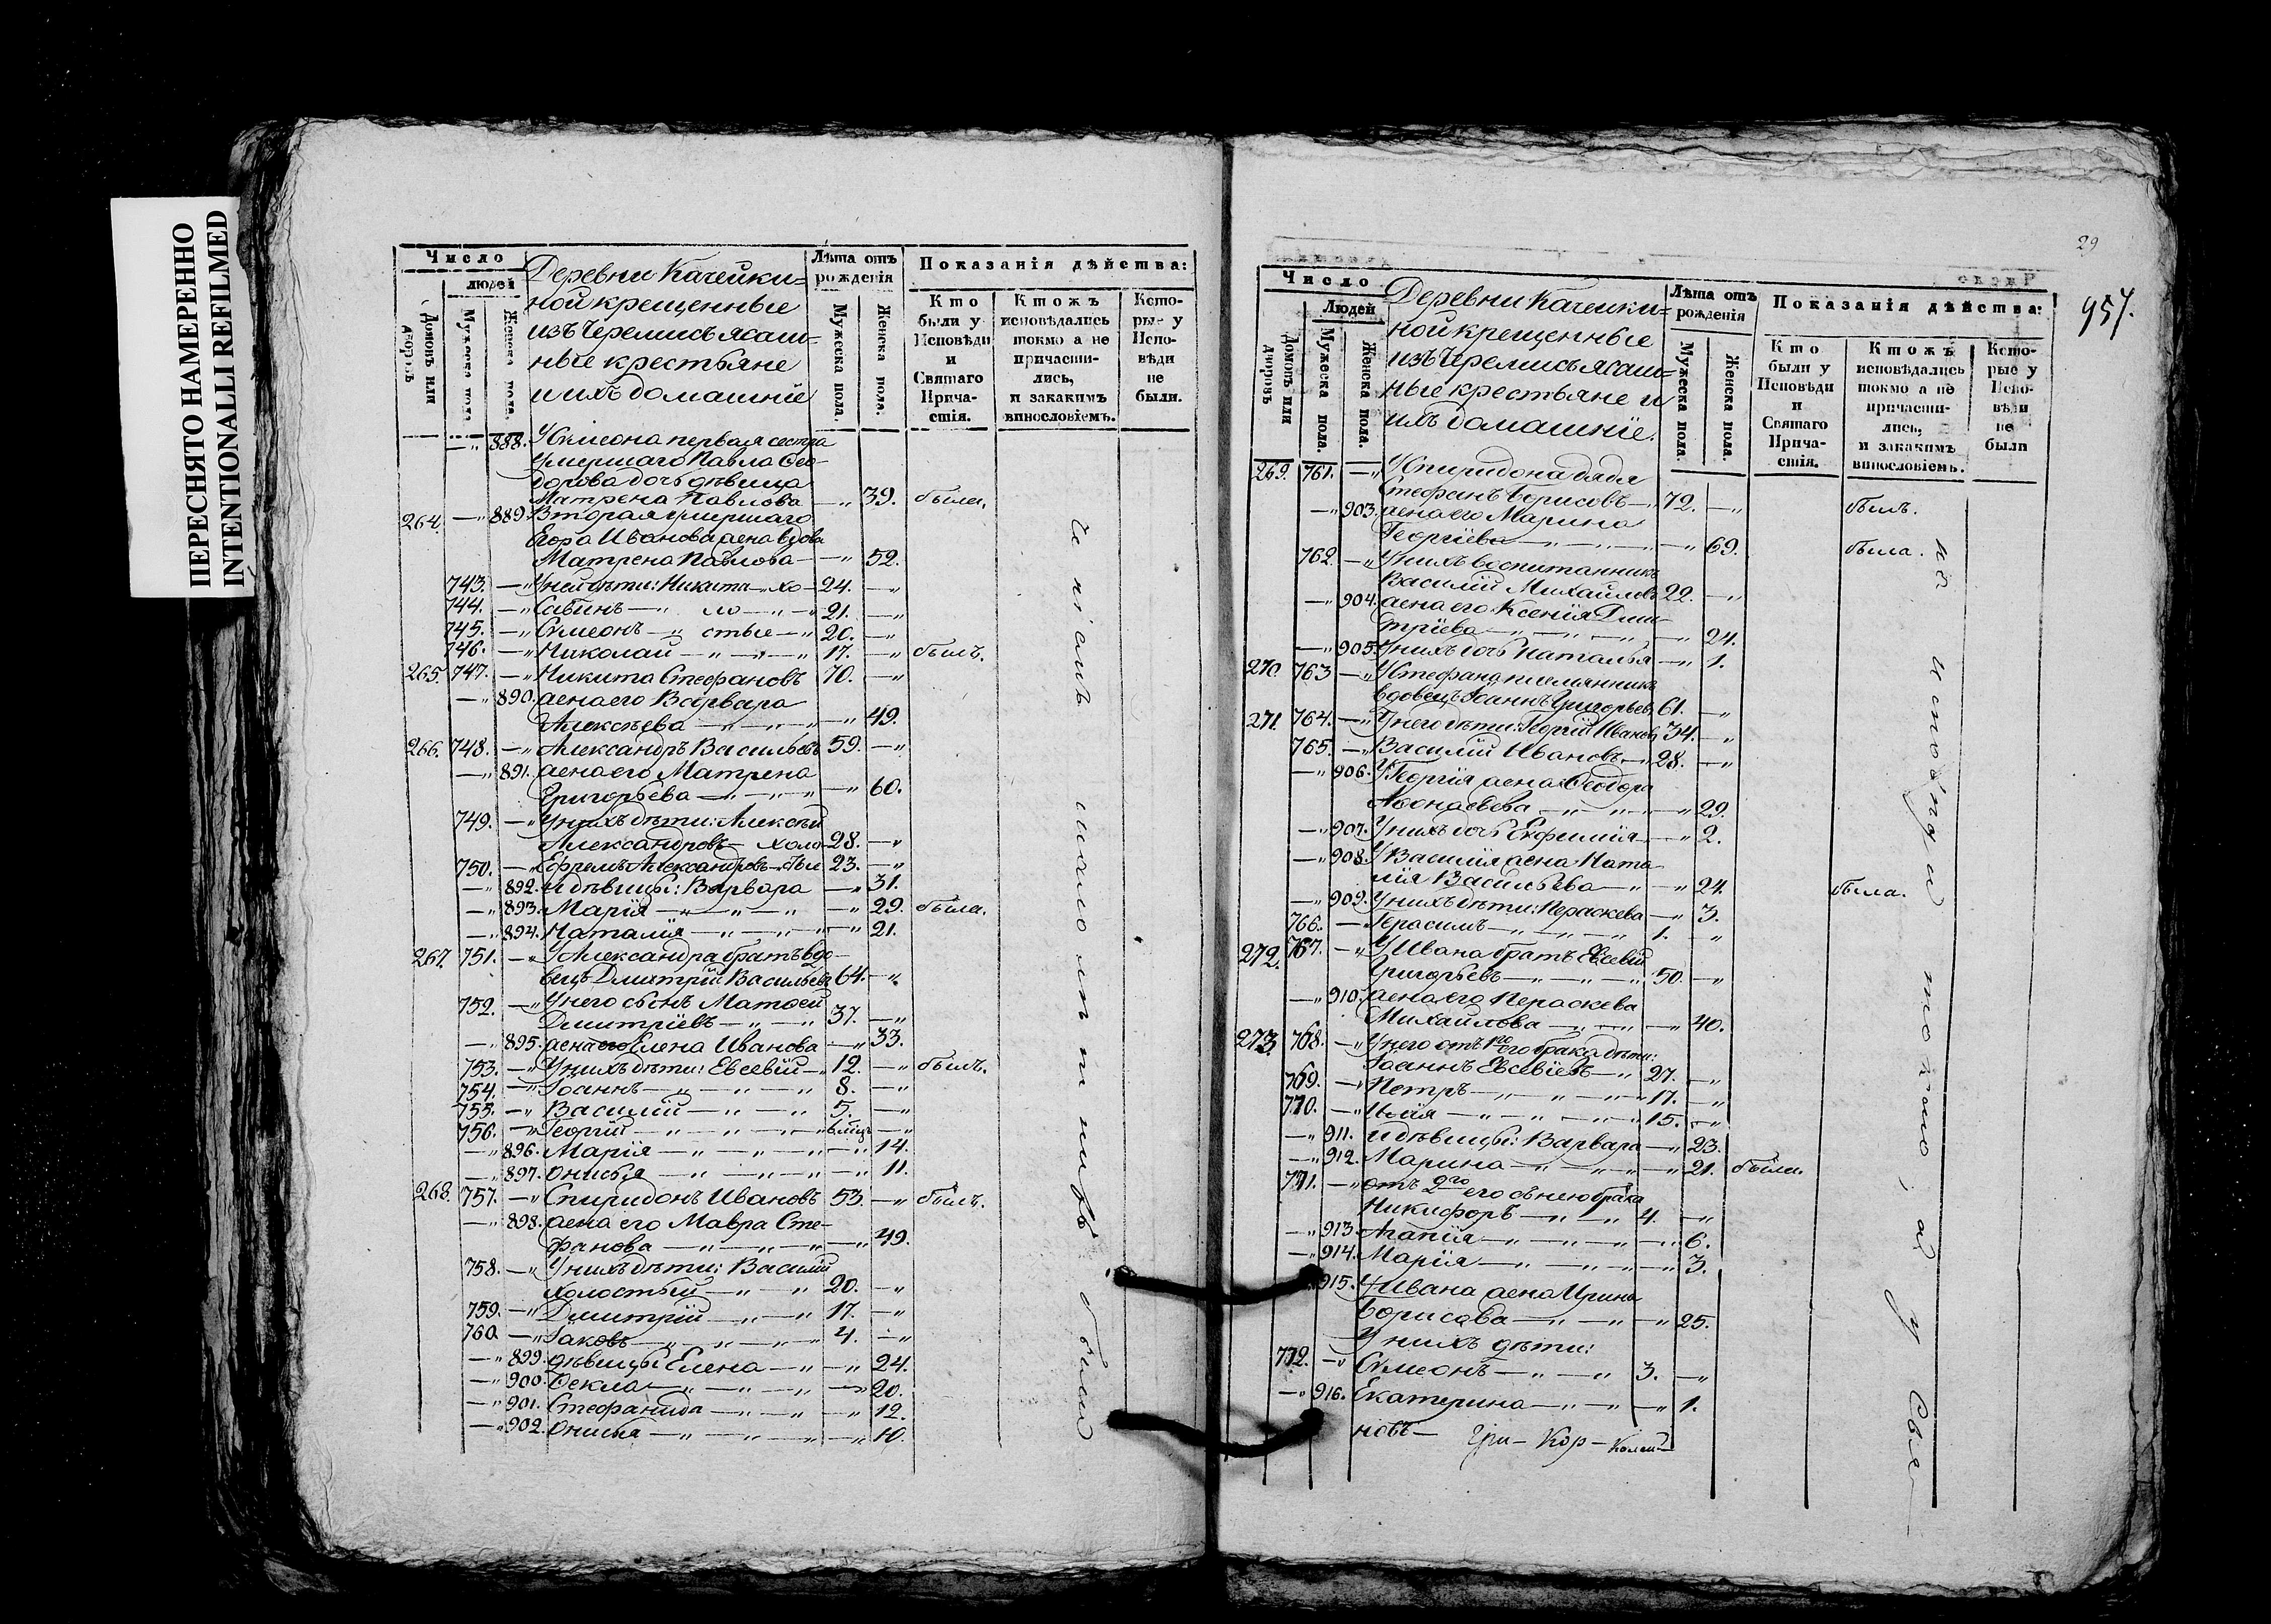 ПЕРЕСНЯТО НАМЕРЕННО
INTENTIONALLI REFILMED
Число
людей
Домовъ или дворовъ
Мужеска пола.
Женска пола.
Деревни Качейки=
ной крещенные
изъ Черемисъ ясаш=
ные крестьяне
и ихъ домашнiе
Лѣта отъ рожденiя
Мужеска пола.
Женска пола.
Показанiя дѣйства:
Кто были у Исповѣди и Святаго Прича- стiя.
Ктожъ исповѣдались токмо а не причасти- лись, и закакимъ винословiемъ.
Кото- рые у Испо- вѣди не были.
—„ 888. У Симеона первая сестра
умершаго Павла Ѳео-
дорова дочь дѣвица
Матрена Павлова —„ 39. была.
264. —„ 889. Вторая умершаго
Егора Иванова жена вдова
Матрена Павлова —„ 52.
743. —„ У ней дѣти: Никита —„ хо- 24. —„
744. —„ Савинъ —„ ло —„ 21. —„
745. —„ Симеонъ —„ стые —„ 20. —„
746. —„ Николай —„ —„ —„ 17. —„ былъ.
265. 747. —„ Никита Стефановъ 70. —„
—„ 890. жена его Варвара
Алексѣева —„ —„ —„ 49.
266. 748. —„ Александръ Васильевъ 59. —„
—„ 891. жена его Матрена
Григорьева —„ —„ —„ 60.
749. —„ У нихъ дѣти: Алексѣй
Александровъ — холо- 28. —„
750. —„ Ефремъ Александровъ —„ стые 23. —„
—„ 892. и дѣвицы: Варвара —„ 31.
—„ 893. Марiя —„ —„ —„ 29. была.
—„ 894. Наталiя —„ —„ —„ 21.
267. 751. —„ У Александра братъ вдо-
вецъ Дмитрiй Васильевъ 64. —„
752. —„ У него сынъ Матѳей
Дмитрiевъ —„ —„ 37. —„
—„ 895. жена его Елена Иванова —„ 33.
753. —„ У нихъ дѣти: Евсевiй —„ 12. —„ былъ.
754. —„ Iоаннъ —„ —„ —„ 8. —„
755. —„ Василiй —„ —„ —„ 5. —„
756. —„ Георгiй —„ —„ —„ 6 мѣц. —„
—„ 896. Марiя —„ —„ —„ 14.
—„ 897. Онисья —„ —„ —„ 11.
268. 757. —„ Спиридонъ Ивановъ 53. —„ былъ.
—„ 898. жена его Мавра Сте-
фанова —„ —„ —„ 49.
758. —„ У нихъ дѣти: Василiй
холостый —„ —„ 20. —„
759. —„ Дмитрiй —„ —„ 17. —„
760. —„ Iаковъ —„ —„ —„ 4. —„
—„ 899. дѣвицы Елена —„ —„ 24.
—„ 900. Ѳекла —„ —„ —„ 20.
—„ 901. Стефанида —„ —„ —„ 12.
—„ 902. Онисья —„ —„ —„ 10.
были
29
957.
Число
Людей
Домовъ или дворовъ
Мужеска пола.
Женска пола.
Деревни Качейки=
ной крещенные
изъ Черемисъ ясаш=
ные крестьяне и
ихъ домашнiе.
Лѣта отъ рожденiя
Мужеска пола.
Женска пола.
Показанiя дѣйства:
Кто были у Исповѣди и Святаго Прича- стiя.
Ктожъ исповѣдались токмо а не причасти- лись, и закакимъ винословiемъ.
Кото- рые у Испо- вѣди не были
269. 761. —„ У Спиридона дядя
Стефанъ Борисовъ —„ 72. —„ былъ.
—„ 903. жена его Марина
Георгiева —„ —„ —„ 69. была.
762. —„ У нихъ воспитанникъ
Василiй Михайловъ 22. —„
—„ 904. жена его Ксенiя Дми-
трiева —„ —„ —„ 24.
—„ 905. У нихъ дочь Наталья —„ 1.
270. 763 —„ У Стефана племянникъ
вдовецъ Iоаннъ Григорьевъ 61. —„
271. 764. —„ У него дѣти: Георгiй Ивановъ 34. —„
765. —„ Василiй Ивановъ —„ 28. —„
—„ 906. У Георгiя жена Ѳеодора
Аѳонасьева —„ —„ —„ 29.
—„ 907. У нихъ дочь Евфимiя —„ 2.
—„ 908. У Василiя жена Ната-
лiя Васильева —„ —„ 24. была.
—„ 909. У нихъ дѣти: Пераскева —„ 3.
766. — Герасимъ —„ —„ 1. „
272. 767. —„ У Ивана братъ Евсевiй
Григорьевъ —„ —„ 50. —„
—„ 910. жена его Пераскева
Михайлова —„ —„ —„ 40.
273. 768. —„ У него отъ 1го его брака дѣти:
Iоаннъ Евсевiевъ —„ 27. —„
769. —„ Петръ —„ —„ —„ 17. —„
770. —„ Илiя —„ —„ —„ 15. —„
—„ 911. и дѣвицы: Варвара —„ 23.
—„ 912. Марина —„ —„ —„ 21. была.
771. —„ отъ 2го его съ нею брака
Никифоръ —„ —„ 4. —„
—„ 913. Агапiя —„ —„ —„ 6.
—„ 914. Марiя —„ —„ —„ 3.
915. У Ивана жена Ирина
Борисова —„ —„ —„ 25.
У нихъ дѣти:
772. —„ Симеонъ —„ —„ 3. —„
—„ 916. Екатерина —„ —„ —„ 1.
новъ —
исповѣди токмо, а у Свя-